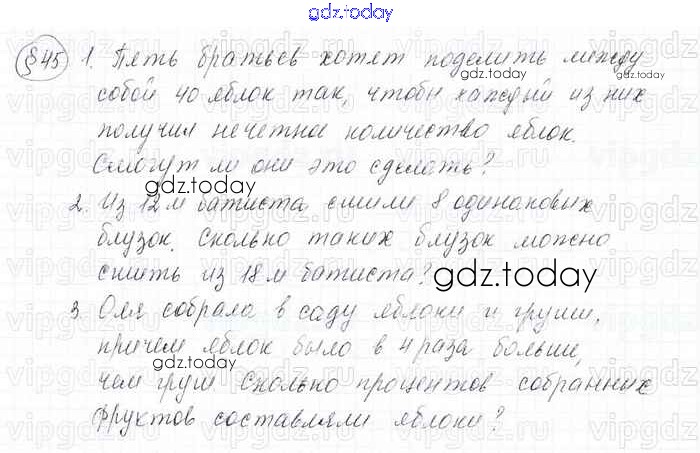 gdz.today
§45 1. Пять братьев хотят поделить между
собой 40 яблок так, чтобы каждый из них
получил нечетное количество яблок.
Смогут ли они это сделать?
2. Из 12 м батиста сшили 8 одинаковых
блузок. Сколько таких блузок можно
сшить из 18 м батиста?
3. Оля собрала в саду яблоки и груши,
причем яблок было в 4 раза больше,
чем груш. Сколько процентов собранных
фруктов составляли яблоки?
gdz.today
gdz.today
gdz.today
gdz.today
gdz.today